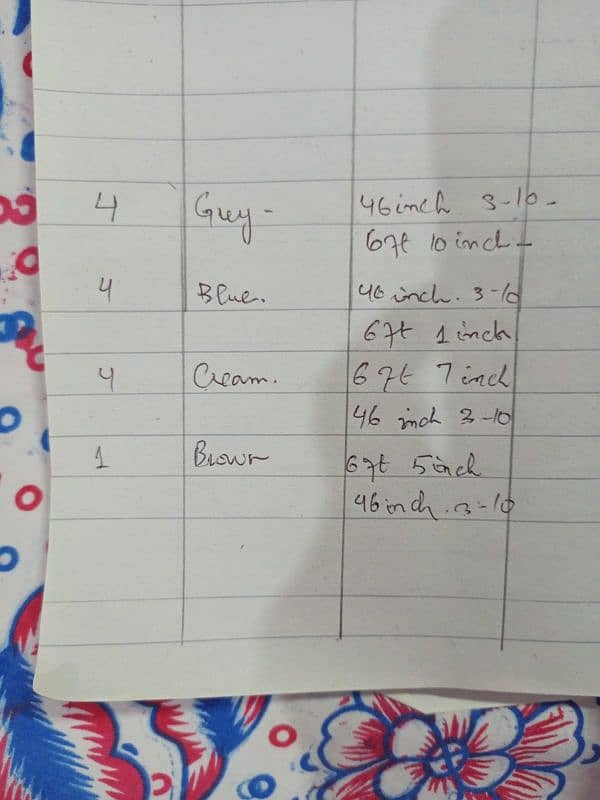 4 Grey - 46 inch 3-10 -
6ft 10 inch -
4 Blue. 46 inch. 3-10
6ft 1 inch
4 Cream. 6ft 7 inch
46 inch 3-10
1 Brown 6ft 5 inch
46 inch. 3-10